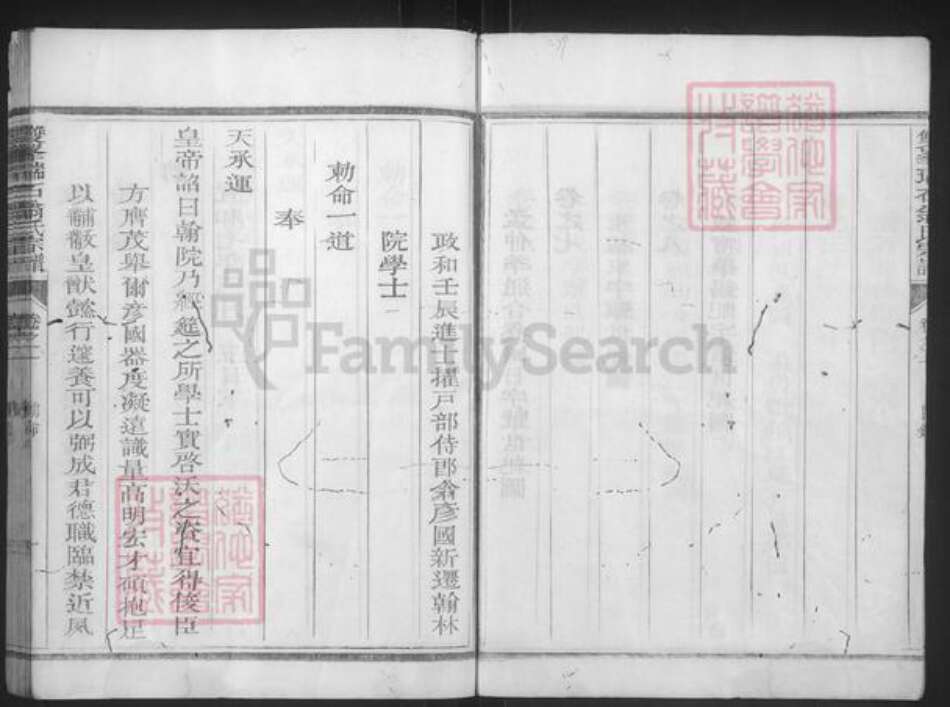 政和壬辰進士擢戶部侍郎翁彥國新遷翰林
院學士
勅命一道
奉
天承運
皇帝詔曰翰院乃經筵之所學士實啓沃之資宜得俊臣
方膺茂舉爾彥國器度凝遠識量高明宏才碩抱足
以黼黻皇猷懿行邃養可以弼成君德職臨禁近風
翁氏宗譜
卷之一
FamilySearch